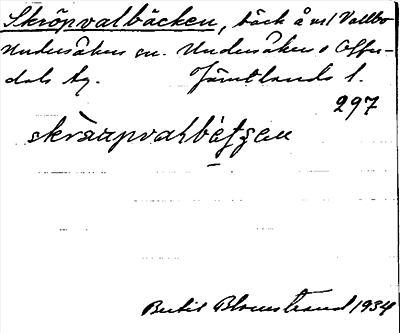 Skröpvalbäcken, bäck å vid Vallbo
Undersåkers sn. Undersåkers o Offer-
dals tg. Jämtlands l.
297
skrӕupvalbètʂen
Bertil Blomstrand 1934